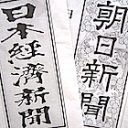 日本経済新聞
朝日新聞